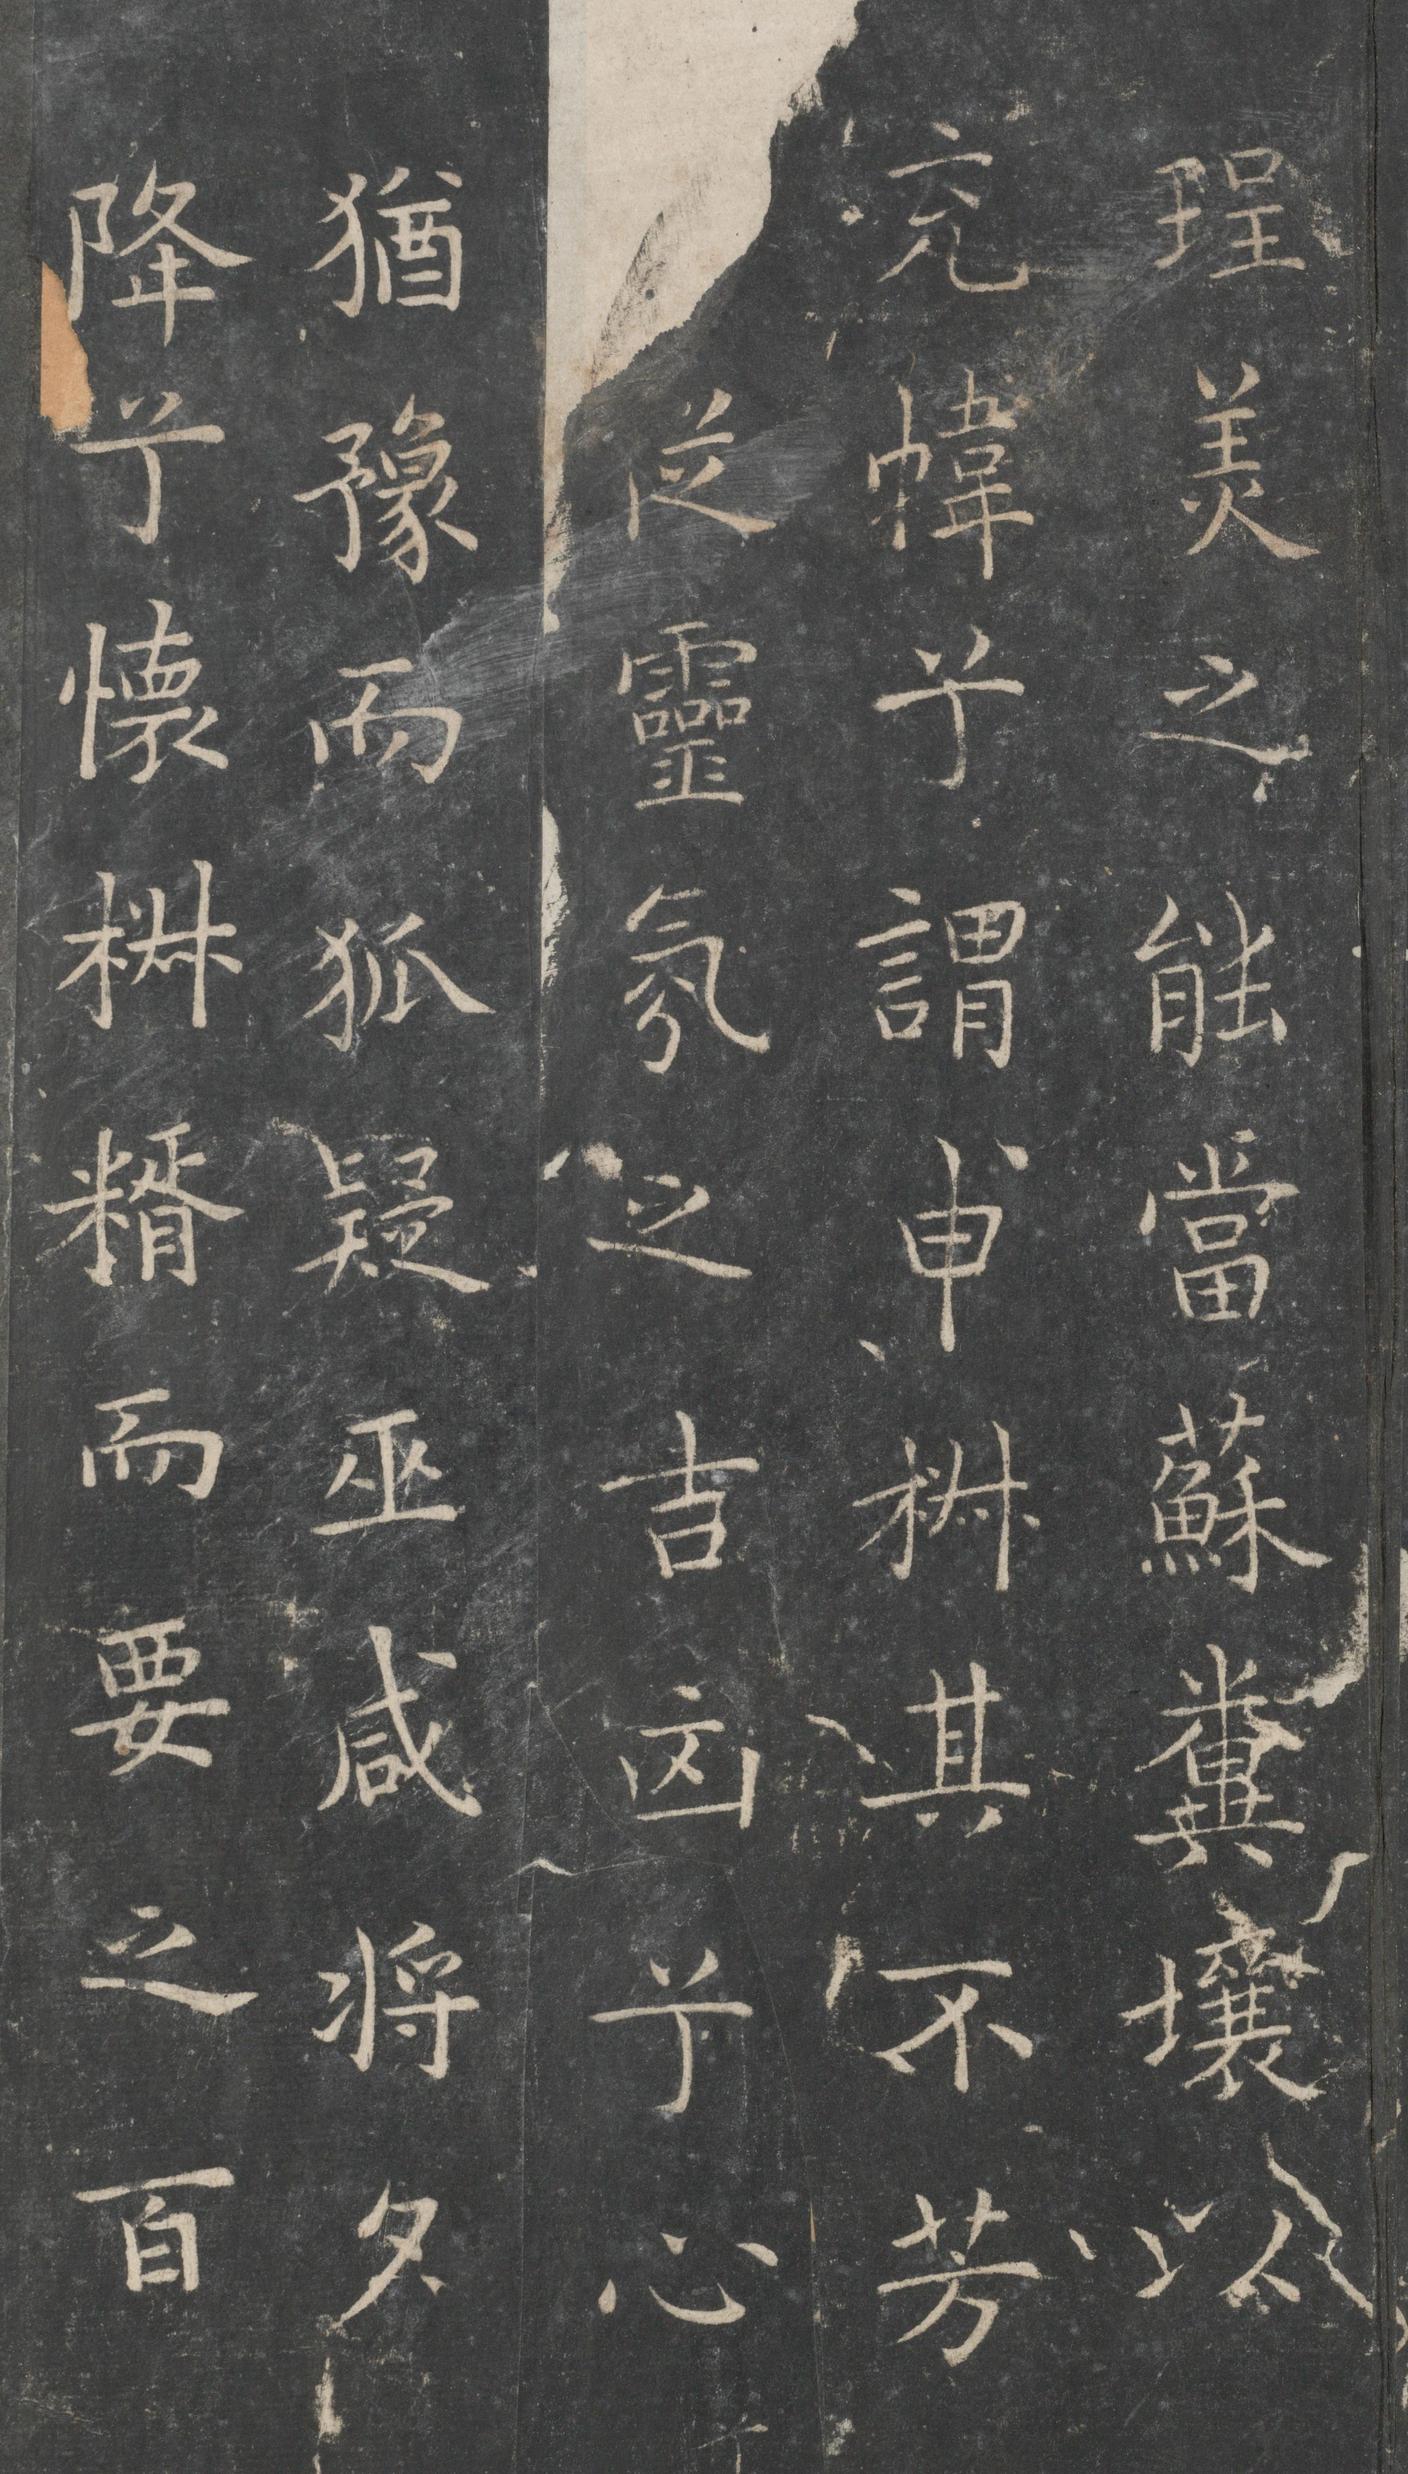 珵美之能當蘇糞壤以
充幃兮謂申椒其不芳
從靈氛之吉凶兮心
猶豫而狐疑巫咸将夕
降兮懷椒糈而要之百